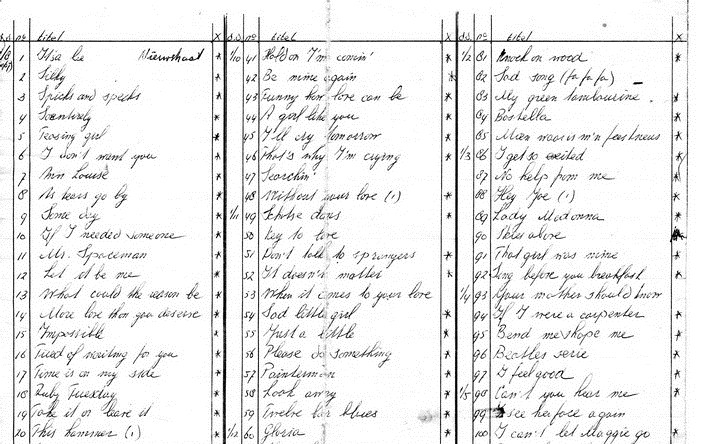 d.d. no titel x
1 Elsa lie Nieuwstad *
2 Silly *
3 Spicks and specks *
4 Scentirely *
5 Teasing girl *
6 I don't want you *
7 Ann Louise *
8 As tears go by *
9 Some day *
10 If I needed someone *
11 Mr. Spaceman *
12 Let it be me *
13 What could the reason be *
14 More love than you deserve *
15 Impossible *
16 Tired of waiting for you *
17 Time is on my side *
18 Ruby Tuesday *
19 Take it or leave it *
20 This hammer (1) *
d.d. no titel x
1/10 41 Hold on I'm comin' *
42 Be mine again *
43 Funny how love can be *
44 A girl like you *
45 I'll cry tomorrow *
46 That's why I'm crying *
47 Searchin'
48 Without your love (1) *
1/11 49 days *
50 Key to love
51 Don't talk to strangers *
52 It doesn't matter *
53 When it comes to your love
54 Sad little girl *
55 Just a little *
56 Please do something *
57 Painterman *
58 Look away *
59 Twelve bar blues *
1/12 60 Gloria *
d.d. no titel x
1/2 81 Knock on wood *
82 Sad song (fa fa fa)
83 My green tambourine *
84 Bostella *
85 Mien waar is m'n feestneus *
1/3 86 I get so excited *
87 No help from me *
88 Hey Joe (1) *
89 Lady Madonna *
90 Skies alive *
91 That girl was mine *
92 Song before you breakfast *
1/4 93 Your mother should know
94 If I were a carpenter *
95 Bend me shape me *
96 Beatles serie *
97 I feel good *
1/5 98 Can't you hear me *
99 I see her face again
100 I can't let Maggie go *